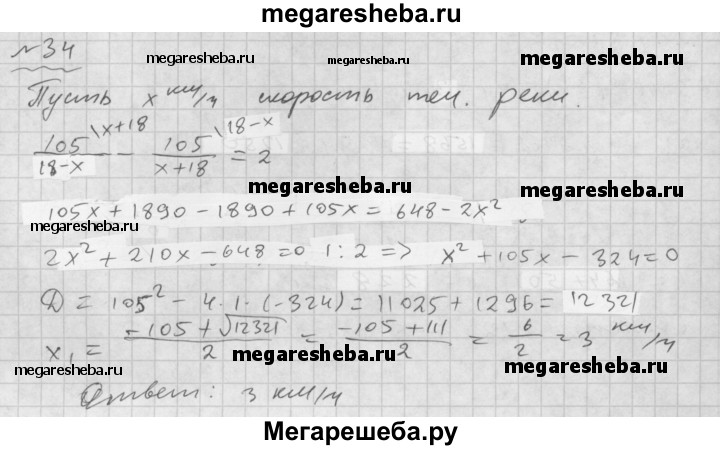 megaresheba.ru
№34
megaresheba.ru megaresheba.ru
Пусть x км/ч скорость теч. реки.
105\x+18/18-x - 105\18-x/x+18 = 2
megaresheba.ru megaresheba.ru
105x+1890-1890+105x=648-2x²
megaresheba.ru
2x²+210x-648=0 |:2 => x²+105x-324=0
megaresheba.ru
D = 105² - 4·1·(-324) = 11025+1296 = 12321
x₁ = (-105+√12321)/2 = (-105+111)/2 = 6/2 = 3 км/ч
megaresheba.ru
megaresheba.ru megaresheba.ru
Ответ: 3 км/ч
megaresheba.ru
Мегарешеба.ру